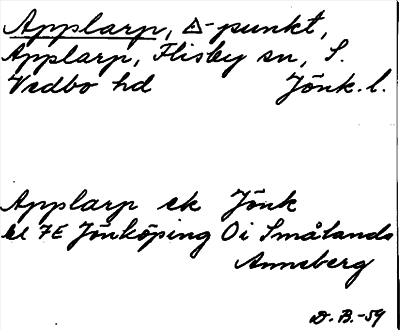 Applarp, △-punkt,
Applarp, Flisby sn, S.
Vedbo hd Jönk. l.
Applarp ek Jönk
bl 7E Jönköping Oi Smålands
Anneberg
D. B. -59